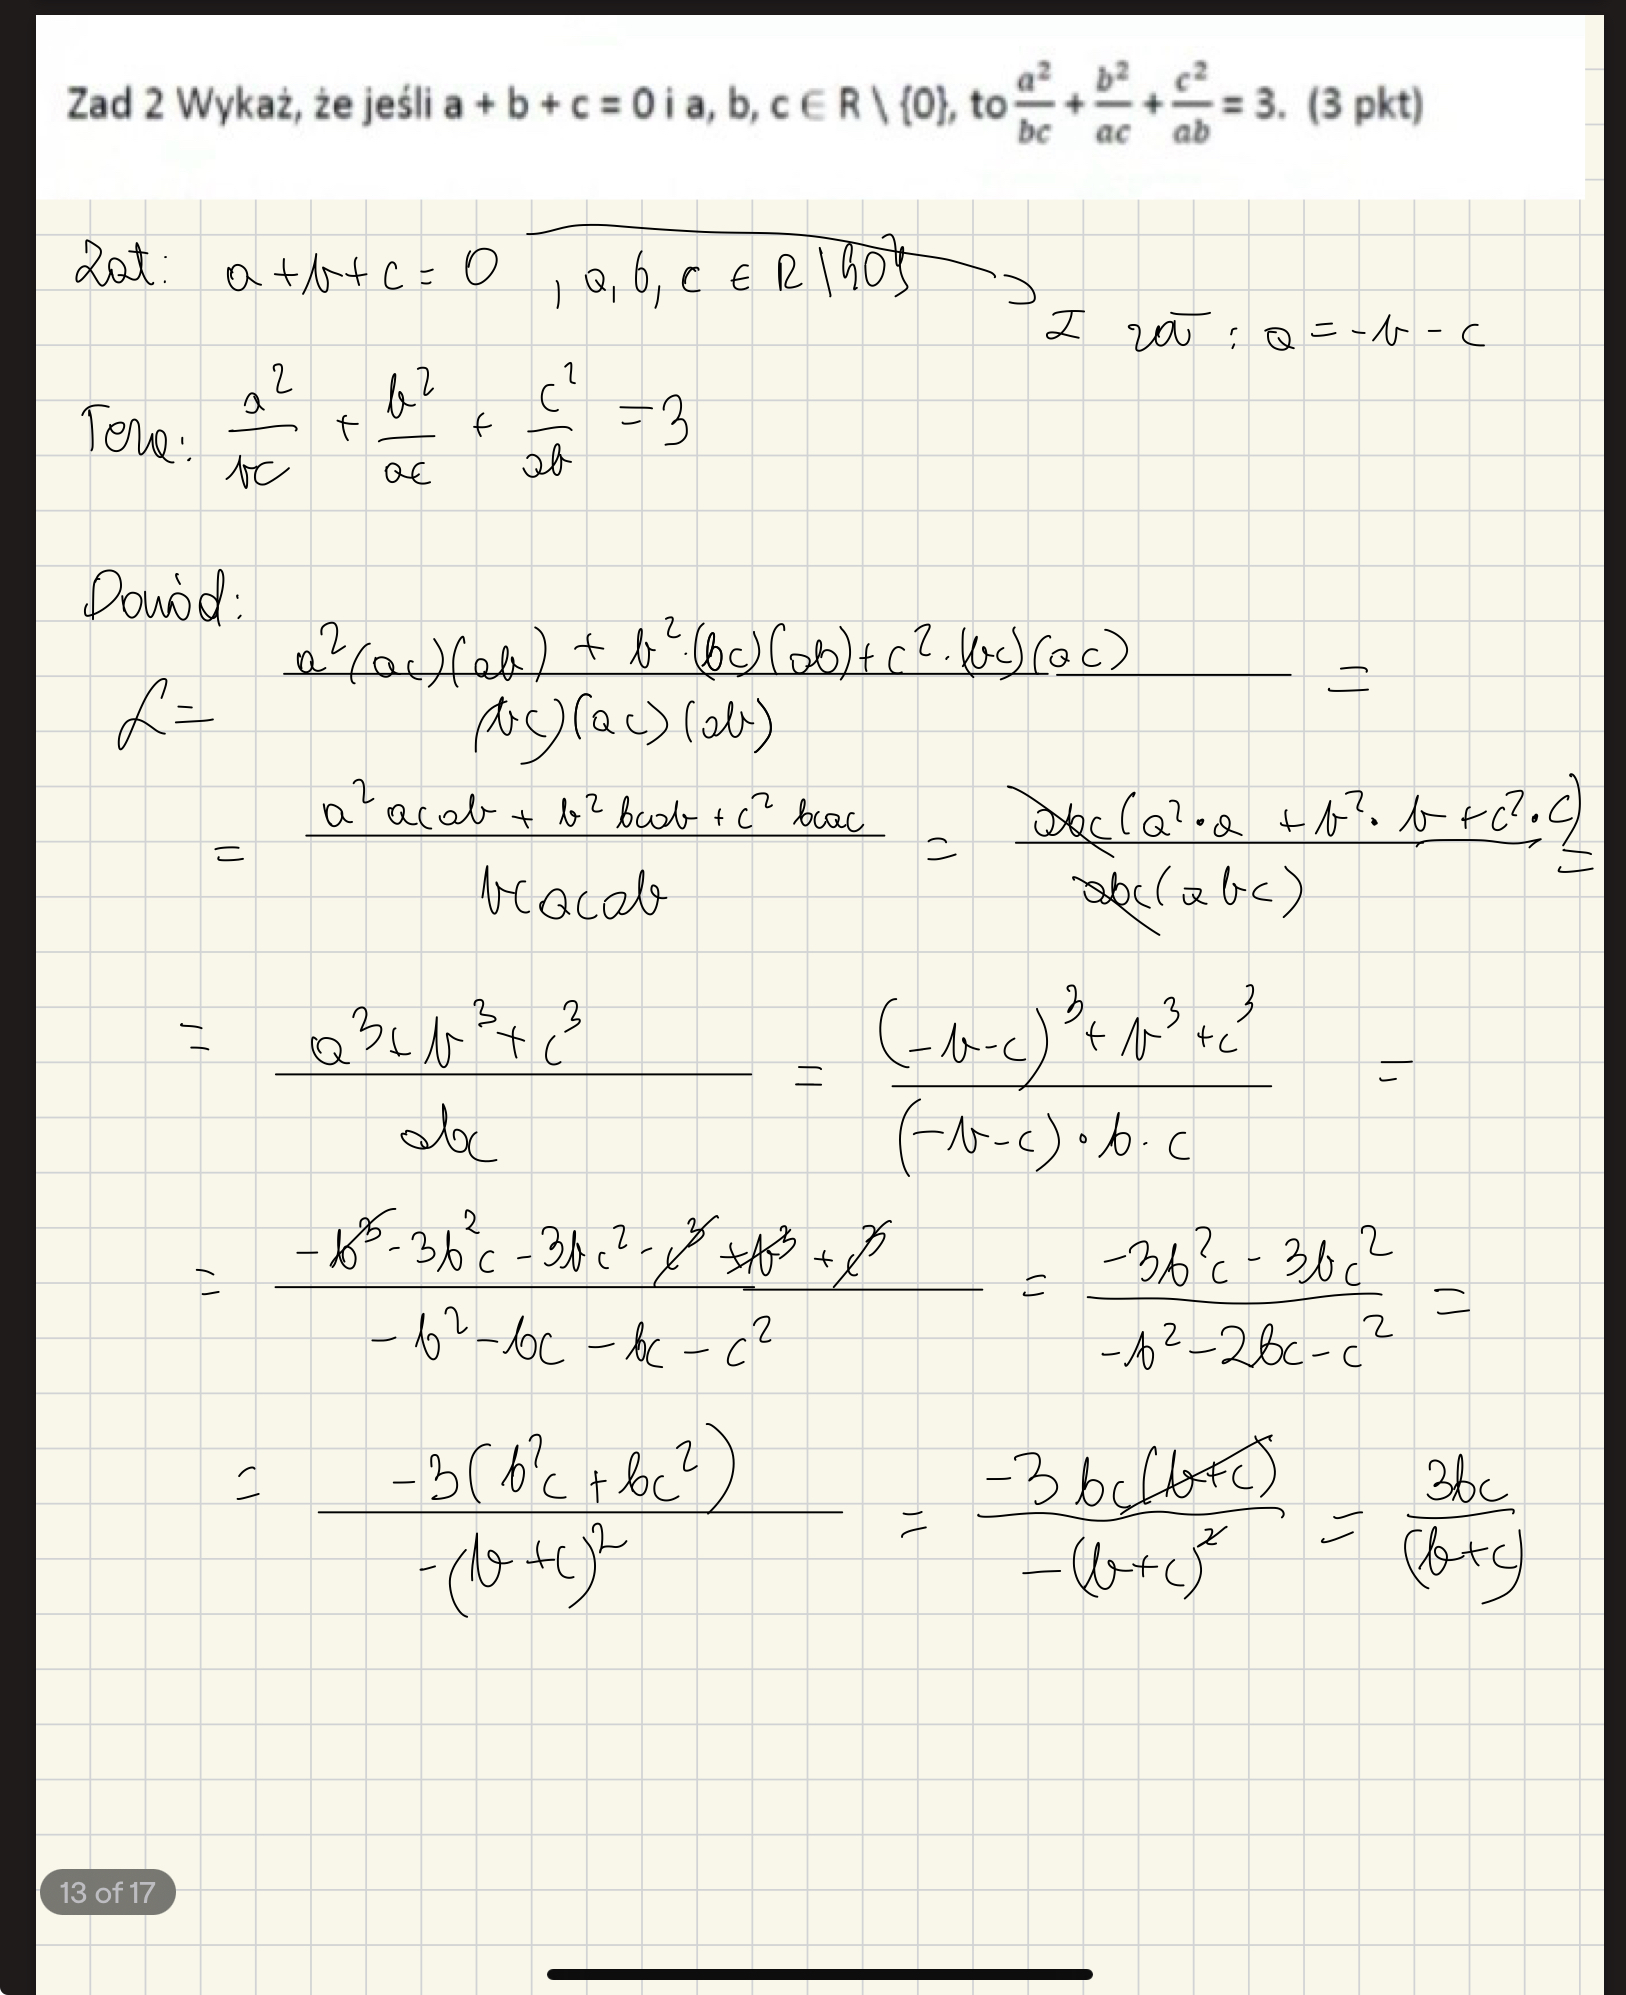 Zad 2 Wykaż, że jeśli a + b + c = 0 i a, b, c ∈ R \ {0}, to a²/bc + b²/ac + c²/ab = 3. (3 pkt)
Zał: a + b + c = 0 , a, b, c ∈ R \ {0}
I zał : a = -b - c
Teza: a²/bc + b²/ac + c²/ab = 3
Dowód:
L = (a²(ac)(ab) + b²·(bc)(ab) + c²·(bc)(ac))/((bc)(ac)(ab)) =
= (a²acab + b²bcab + c²bcac)/(bcacab) = (abc(a²·a + b²·b + c²·c))/(abc(abc)) =
= (a³ + b³ + c³)/(abc) = ((-b-c)³ + b³ + c³)/((-b-c)·b·c) =
= (-b³ - 3b²c - 3bc² - c³ + b³ + c³)/(-b² - bc - bc - c²) = (-3b²c - 3bc²)/(-b² - 2bc - c²) =
= (-3(b²c + bc²))/(-(b+c)²) = (-3bc(b+c))/(-(b+c)²) = 3bc/(b+c)
13 of 17